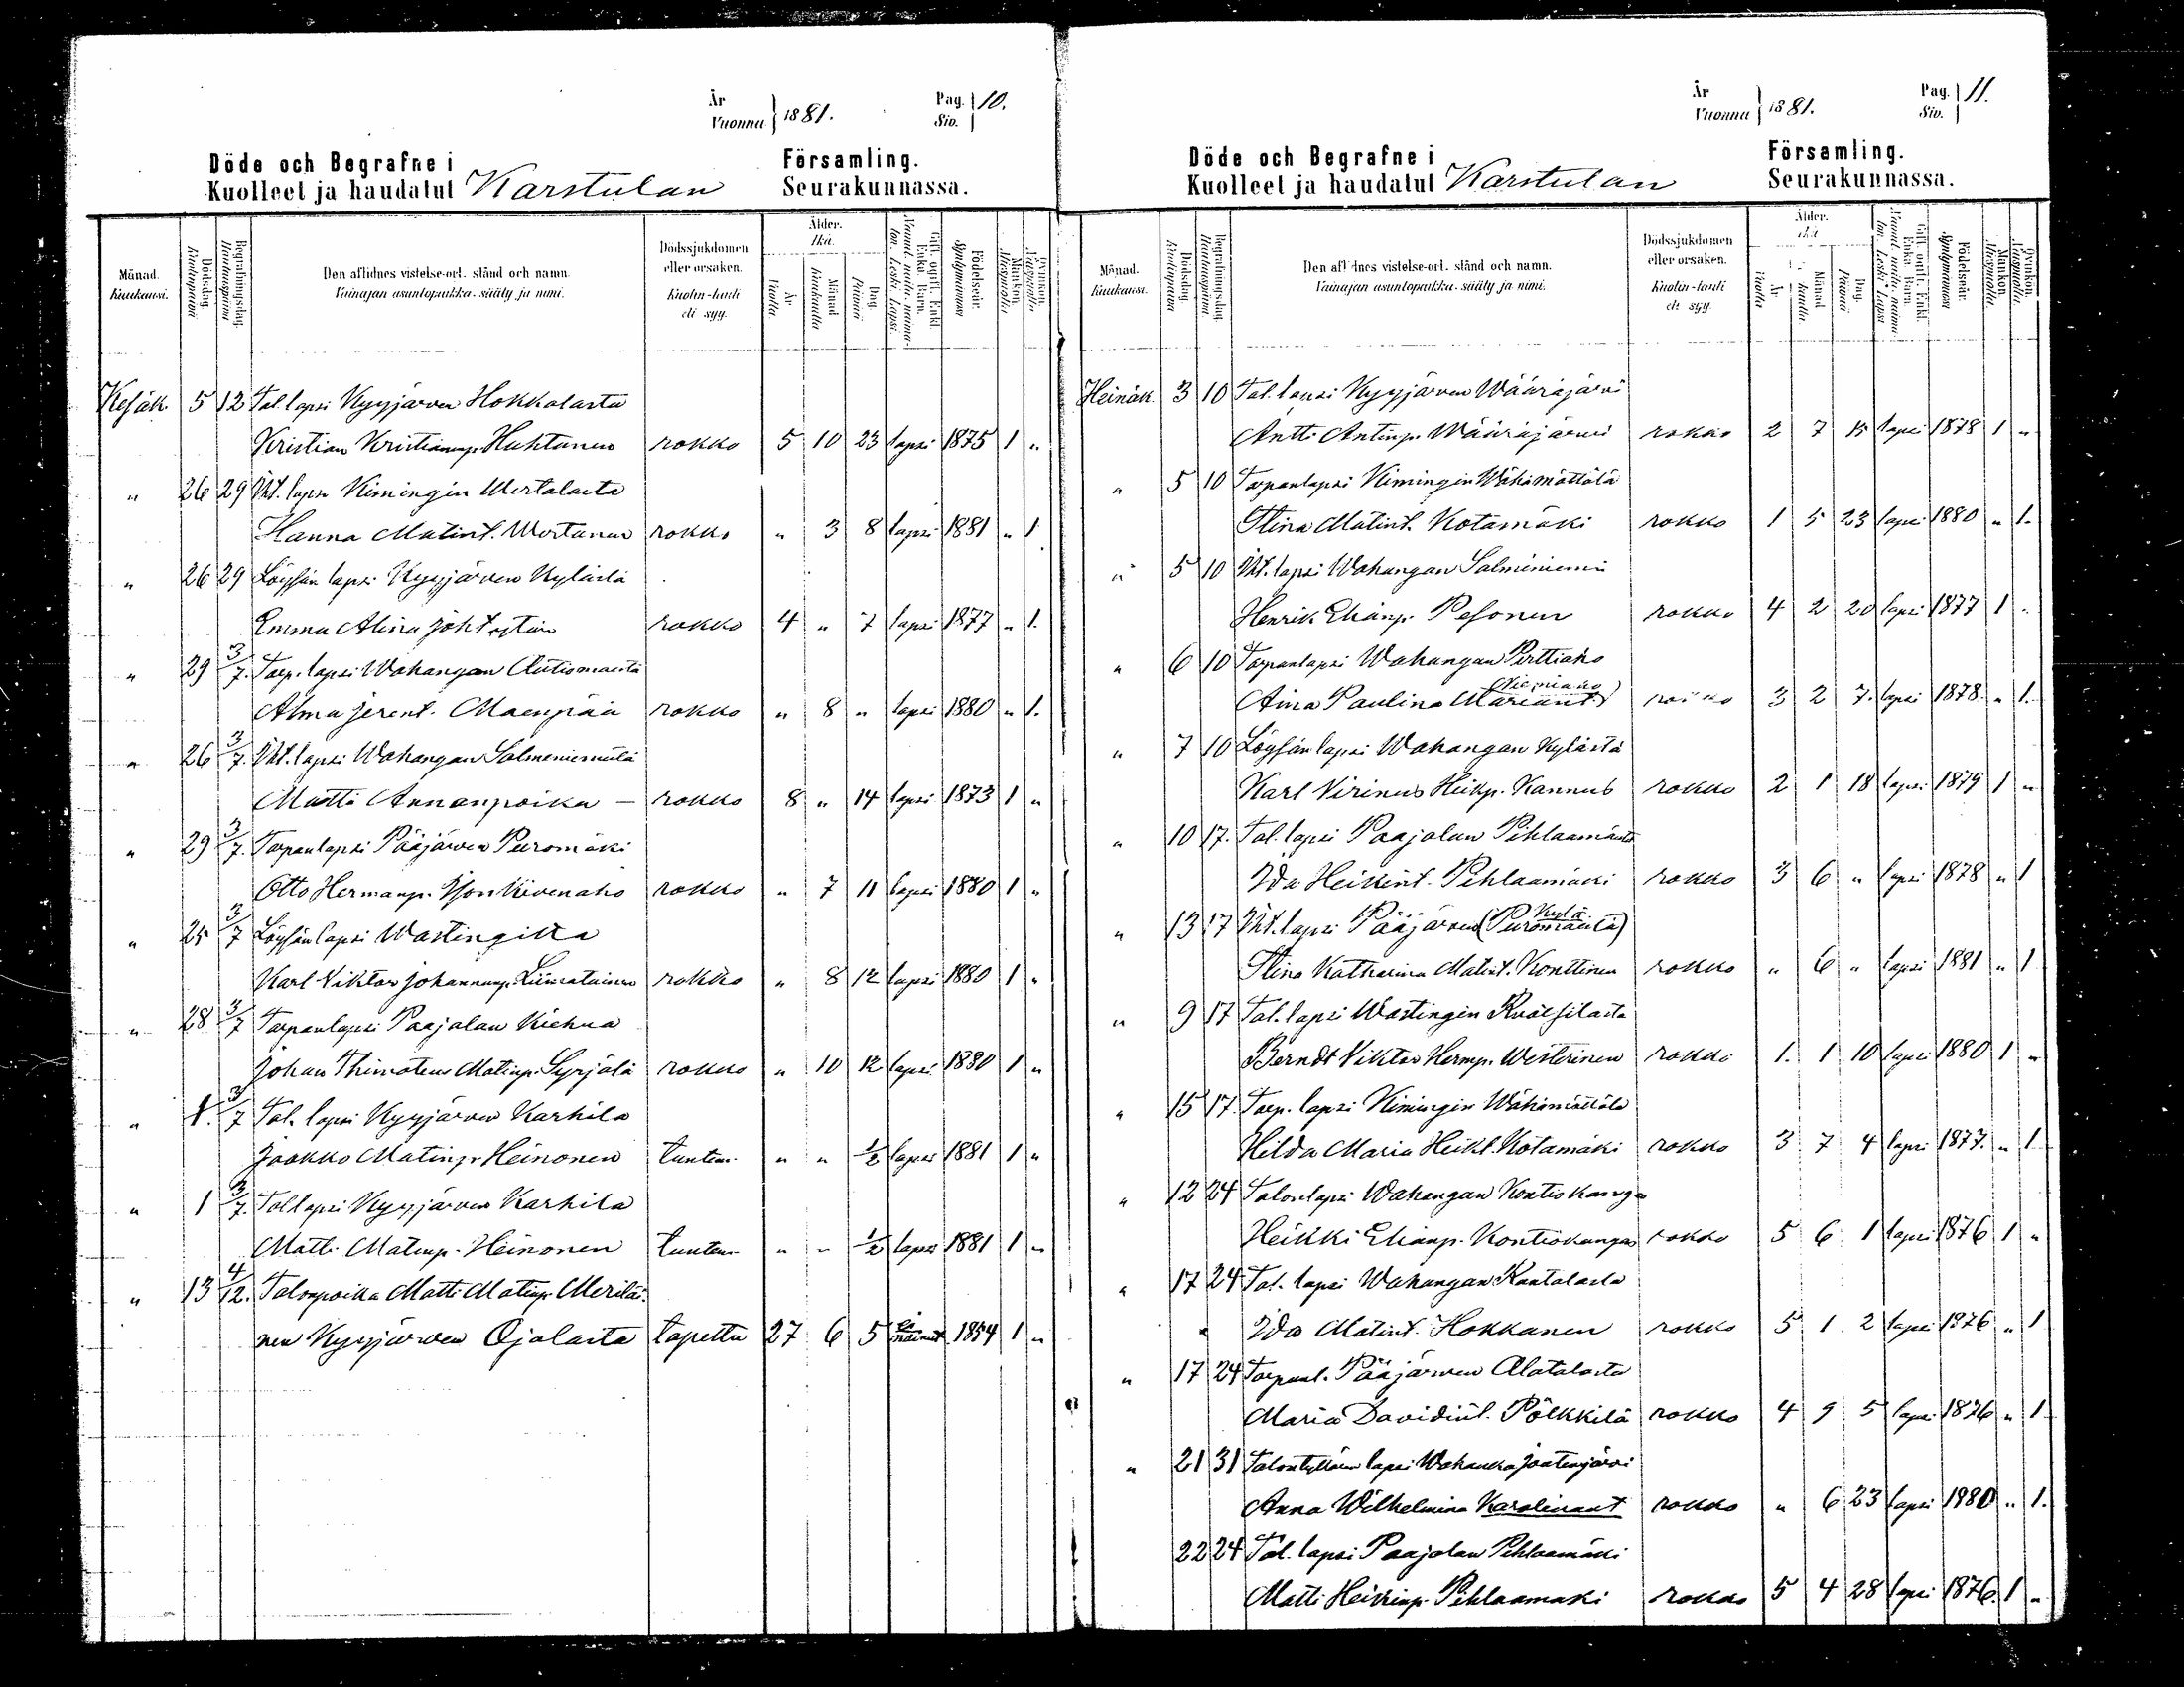 År
Vuonna 1881.
Pag.
Siv. 10.
Döde och Begrafne i
Kuolleet ja haudatut Karstulan
Församling.
Seurakunnassa.
Månad.
Kuukausi.
Dödsdag.
Kuolinpäivä
Begrafningsdag.
Hautauspäivä
Den aflidnes vistelse-ort, stånd och namn.
Vainajan asuntopaikka, sääty ja nimi.
Dödssjukdomen
eller orsaken.
Kuolin-tauti
eli syy.
Ålder.
Ikä.
År.
Vuotta
Månad.
Kuukautta
Dag.
Päivää
Gift, ogift, Enkl.
Enka, Barn.
Födelseår.
Syntymävuosi
Mankön.
Miespuolia
Qvinkön.
Vaimopuolia
Kesäk. 5 12 Tal. lapsi Kyyjärven Hokkalasta
Kristian Kristianinp. Huhtanen rokko 5 10 23 lapsi 1875 1 "
" 26 29 Iht. lapsi Kimingin Mertalasta
Hanna Matint. Mertanen rokko " 3 8 lapsi 1881 " 1
" 26 29 Löysän lapsi Kyyjärven Kylästä
Emma Alina rokko 4 " 7 lapsi 1877 " 1.
" 29 3/7. Torp. lapsi Wahangan Autiomaesta
Alma Jerent. Maenpää rokko " 8 " lapsi 1880 " 1.
" 26 3/7. Iht. lapsi Wahangan Salmeniemestä
Matti Annanpoika — rokko 8 " 14 lapsi 1873 1 "
" 29 3/7. Torpanlapsi Pääjärven Puromäki
Otto Hermanp. Kivenaho rokko " 7 11 lapsi 1880 1 "
" 25 3/7 Löysän lapsi Wastingilta
Karl Viktor Johannanp. Liimatainen rokko " 8 12 lapsi 1880 1 "
" 28 3/7 Torpanlapsi Paajalan Kiehua
Johan Thimoteus Matinp. Syrjälä rokko " 10 12 lapsi 1880 1 "
" 1. 3/7 Tal. lapsi Kyyjärven Karhila
Jaakko Matinp. Heinonen tuntem. " " 1/2 lapsi 1881 1 "
" 1 3/7. Tal lapsi Kyyjärven Karhila
Matti Matinp. Heinonen tuntem. " " 1/2 lapsi 1881 1 "
" 13 4/12. Talonpoika Matti Matinp. Meriläi-
nen Kyyjärven Ojalasta tapettu 27 6 5 ei nainut 1854 1 "
År
Vuonna 1881.
Pag.
Siv. 11.
Döde och Begrafne i
Kuolleet ja haudatut Karstulan
Församling.
Seurakunnassa.
Månad.
Kuukausi.
Dödsdag.
Kuolinpäivä
Begrafningsdag.
Hautauspäivä
Den aflidnes vistelse-ort, stånd och namn.
Vainajan asuntopaikka, sääty ja nimi.
Dödssjukdomen
eller orsaken.
Kuolin-tauti
eli syy.
Ålder.
Ikä
År.
Vuotta
Månad.
Dag.
Päivää
Gift, ogift, Enkl.
Enka, Barn.
Födelseår.
Syntymävuosi
Mankön.
Miespuolia
Qvinkön.
Vaimopuolia
Heinäk. 3 10 Tal. lapsi Kyyjärven Wääräjärvi
Antti Antinp. Wääräjärvi rokko 2 7 15 lapsi 1878 1 "
" 5 10 Torpanlapsi Kimingin Wähämöttölä
Stina Matint. Kotamäki rokko 1 5 23 lapsi 1880 " 1.
" 5 10 Iht. lapsi Wahangan Salminiemi
Henrik Elianp. Pesonen rokko 4 2 20 lapsi 1877 1 "
" 6 10 Torpanlapsi Wahangan Pirttiaho
Aina Paulina Mariant. rokko 3 2 7. lapsi 1878. " 1.
" 7 10 Löysän lapsi Wahangan Kylästä
Karl Virinus Heikp. Kannus rokko 2 1 18 lapsi 1879 1 "
" 10 17. Tal. lapsi Paajalan Pihlaamäestä
Ida Heikint. Pihlaamäki rokko 3 6 " lapsi 1878 " 1
" 13 17 Iht. lapsi Pääjärven (Puromäeltä) Kylä
Stina Katharina Matint. Konttinen rokko " 6 " lapsi 1881 " 1
" 9 17 Tal. lapsi Wastingin
Berndt Viktor Hermp. Westerinen rokko 1. 1 10 lapsi 1880 1 "
" 15 17. Torp. lapsi Kimingin Wähämöttölä
Hilda Maria Heikt. Kotamäki rokko 3 7 4 lapsi 1877. " 1
" 12 24 Talonlapsi Wahangan Kontiokangas
Heikki Elianp. Kontiokangas rokko 5 6 1 lapsi 1876 1 "
" 17 24 Tal. lapsi Wahangan Rantalasta
Ida Matint. Hokkanen rokko 5 1 2 lapsi 1876 " 1
" 17 24 Torpanl. Pääjärven Alatalosta
Maria Davidint. Pölkkilä rokko 4 9 5 lapsi 1876 " 1
" 21 31 Talontyttären lapsi Wahanka
Anna Wilhelmina Karolinant rokko " 6 23 lapsi 1980 " 1.
22 24 Tal. lapsi Paajalan Pihlaamäki
Matti Heikinp. Pihlaamaki rokko 5 4 28 lapsi 1876. 1 "